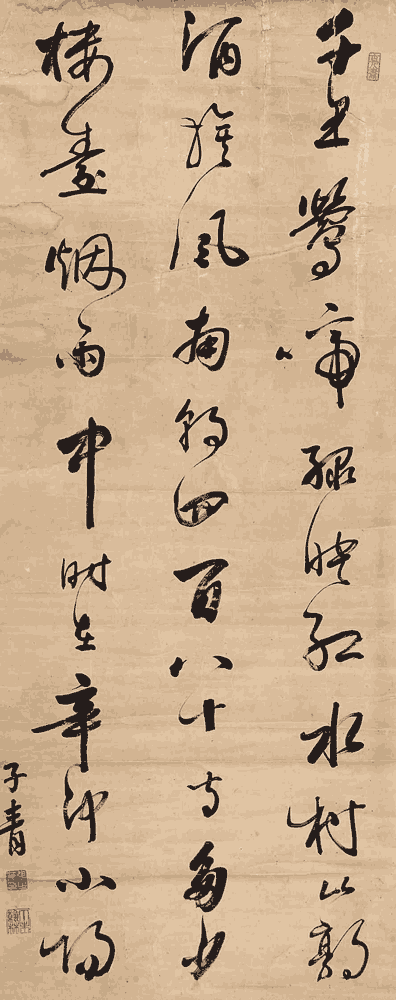 千里鶯啼綠映紅水村山郭
酒旗風南朝四百八十寺多少
樓臺烟雨中時在辛卯小陽
子青